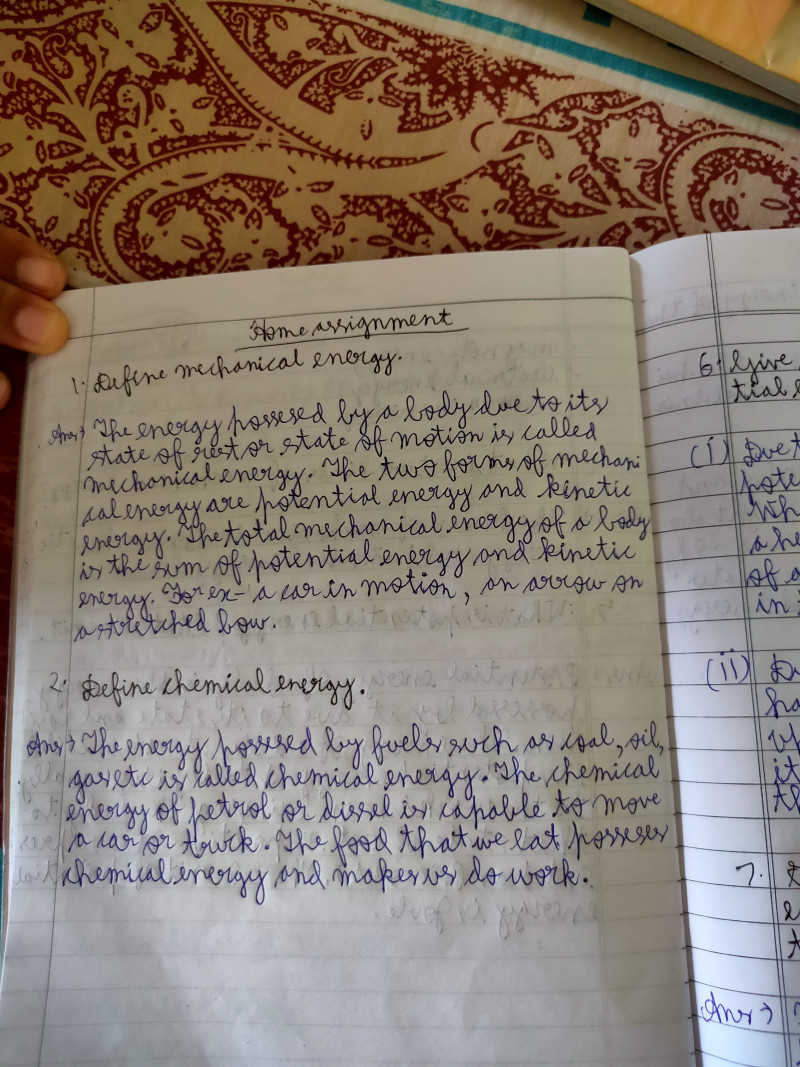 Home assignment
1. Define mechanical energy.
Ans→ The energy possesed by a body due to its
state of rest or state of motion is called
mechanical energy. The two forms of mechani
cal energy are potential energy and kinetic
energy. The total mechanical energy of a body
is the sum of potential energy and kinetic
energy. For ex- a car in motion, an arrow on
a stretched bow.
2. Define chemical energy.
Ans→ The energy possesed by fuels such as coal, oil,
gas etc is called chemical energy. The chemical
energy of petrol or diesel is capable to move
a car or truck. The food that we eat posseses
chemical energy and makes us do work.
6. Give
tial
(i) Due t
pote
Wh
a he
of a
in
(ii) Du
ha
up
it
th
7.
e
t
Ans→